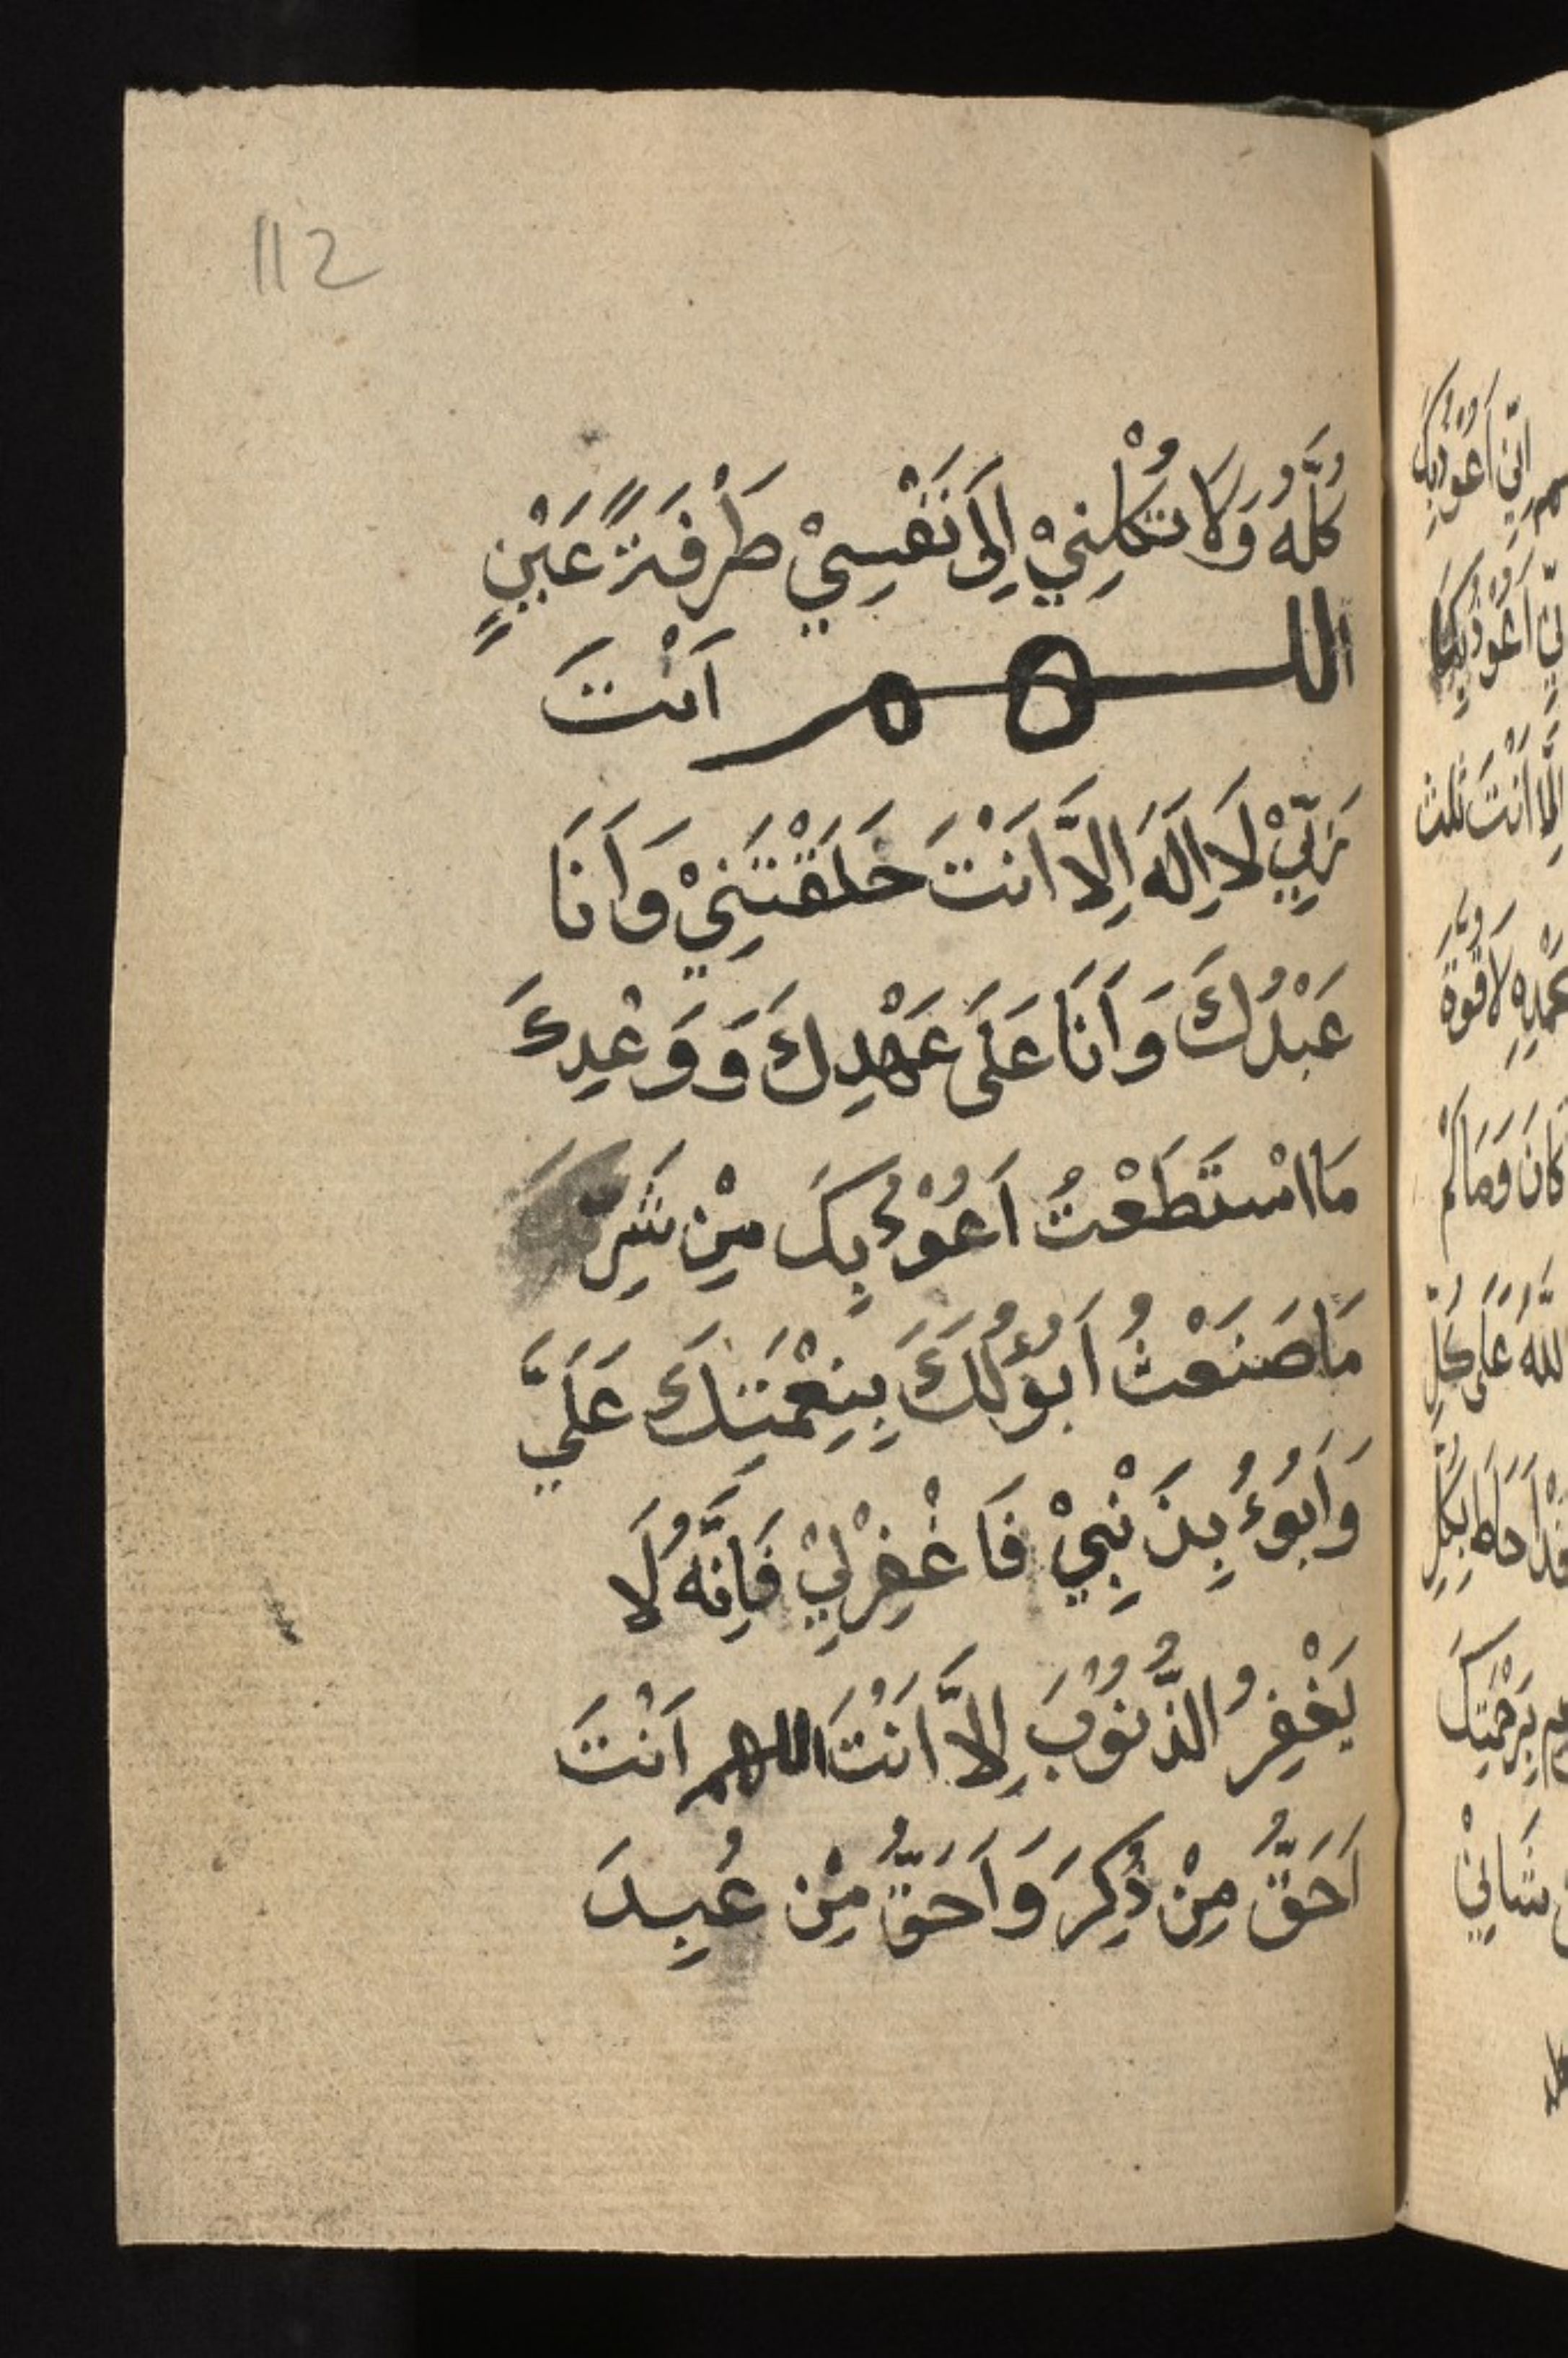 112
كُلَّهُ وَلَا تَكِلْنِيْ اِلَى نَفْسِيْ طَرْفَةً عَيْنٍ
اللهم اَنْتَ
رَبِّيْ لَا اِلَهَ اِلَّا اَنْتَ خَلَقْتَنِيْ وَاَنَا
عَبْدُكَ وَاَنَا عَلَى عَهْدِكَ وَوَعْدِكَ
مَا اسْتَطَعْتُ اَعُوْذُ بِكَ مِنْ شَرِّ
مَا صَنَعْتُ اَبُوْءُ لَكَ بِنِعْمَتِكَ عَلَيَّ
وَاَبُوْءُ بِذَنْبِيْ فَاغْفِرْلِيْ فَاِنَّهُ لَا
يَغْفِرُ الذُّنُوْبَ اِلَّا اَنْتَ اللهم اَنْتَ
اَحَقُّ مِنْ ذُكِرَ وَاَحَقُّ مِنْ عُبِدَ